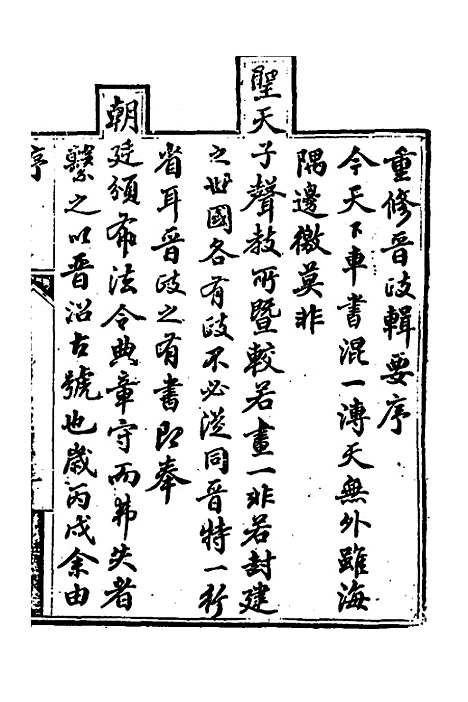 重修晉政輯要序
今天下車書混一溥天無外雖海
隅邊徼莫非
聖天子聲教所暨較若畫一非若封建
之世國各有政不必從同晉特一行
省耳晉政之有書即奉
朝廷頒布法令典章守而弗失者
繫之以晉沿古號也歲丙戌余由
序